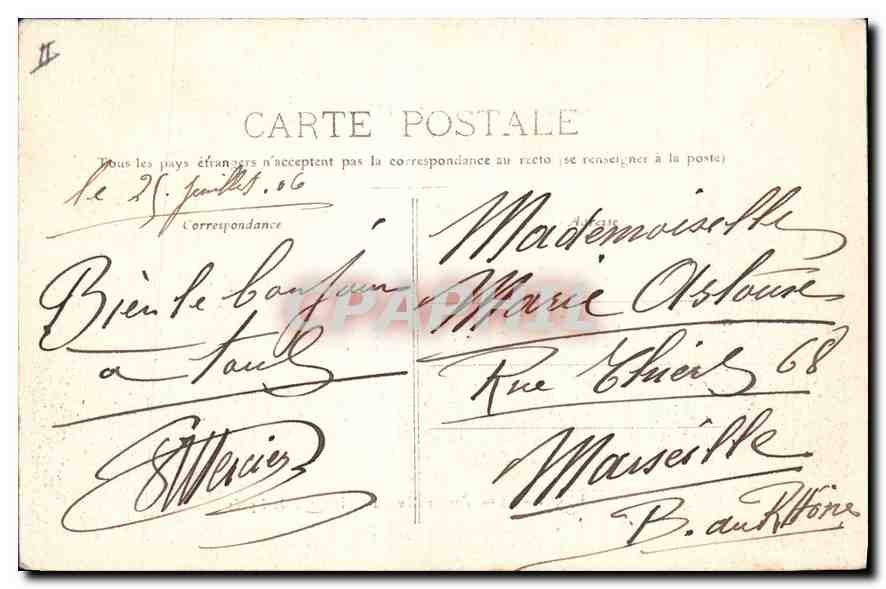 II
CARTE POSTALE
Tous les pays étrangers n'acceptent pas la correspondance au recto (se renseigner à la poste)
le 25. juillet. 06
Correspondance
Adresse
Bien le bonjour
a tous
Mercier
Mademoiselle
Marie Astouse
Rue Thiers 68
Marseille
B. du Rhône
CPAPHIL